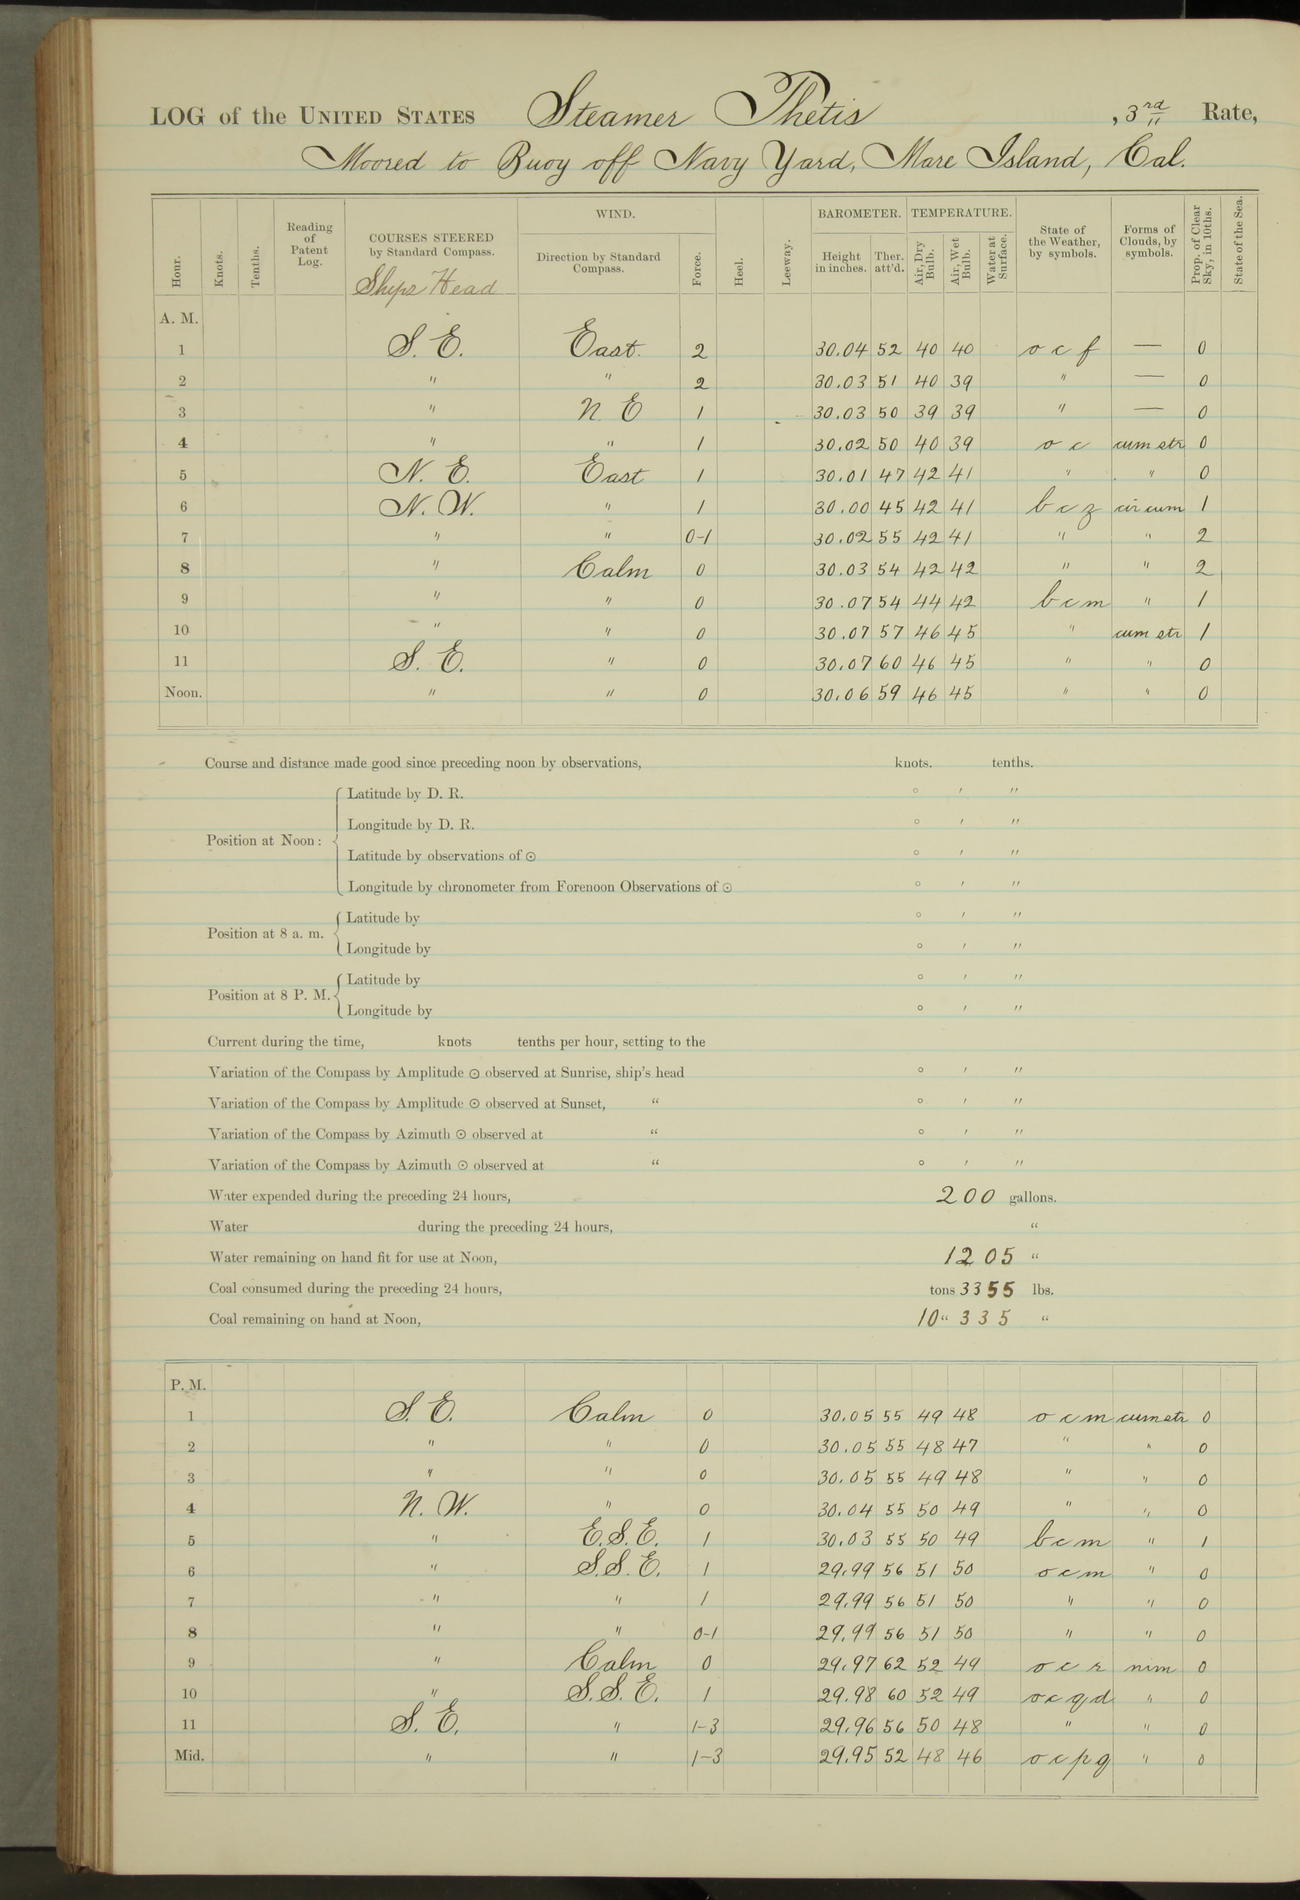 LOG of the UNITED STATES Steamer Thetis , 3rd Rate,
Moored to Buoy off Navy Yard, Mare Island, Cal.
Hour. Knots. Tenths. Reading of Patent Log. COURSES STEERED by Standard Compass. Ships Head WIND. Direction by Standard Compass. Force. Heel. Leeway. BAROMETER. Height in inches. Ther. att'd. TEMPERATURE. Air, Dry Bulb. Air, Wet Bulb. Water at Surface. State of the Weather, by symbols. Forms of Clouds, by symbols. Prop. of Clear Sky, in 10ths. State of the Sea.
A. M.
1 S. E. East. 2 30.04 52 40 40 o c f — 0
2 " " 2 30.03 51 40 39 " — 0
3 " N E 1 30.03 50 39 39 " — 0
4 " " 1 30.02 50 40 39 o c cum str 0
5 N. E. East 1 30.01 47 42 41 " " 0
6 N. W. " 1 30.00 45 42 41 b c z cir cum 1
7 " " 0-1 30.02 55 42 41 " " 2
8 " Calm 0 30.03 54 42 42 " " 2
9 " " 0 30.07 54 44 42 b c m " 1
10 " " 0 30.07 57 46 45 " cum str 1
11 S. E. " 0 30.07 60 46 45 " " 0
Noon. " " 0 30.06 59 46 45 " " 0
Course and distance made good since preceding noon by observations, knots. tenths.
Position at Noon: Latitude by D. R. ° ′ ″
Longitude by D. R. ° ′ ″
Latitude by observations of ⊙ ° ′ ″
Longitude by chronometer from Forenoon Observations of ⊙ ° ′ ″
Position at 8 a. m. Latitude by ° ′ ″
Longitude by ° ′ ″
Position at 8 P. M. Latitude by ° ′ ″
Longitude by ° ′ ″
Current during the time, knots tenths per hour, setting to the
Variation of the Compass by Amplitude ⊙ observed at Sunrise, ship's head ° ′ ″
Variation of the Compass by Amplitude ⊙ observed at Sunset, " ° ′ ″
Variation of the Compass by Azimuth ⊙ observed at " ° ′ ″
Variation of the Compass by Azimuth ⊙ observed at " ° ′ ″
Water expended during the preceding 24 hours, 200 gallons.
Water during the preceding 24 hours, "
Water remaining on hand fit for use at Noon, 1205 "
Coal consumed during the preceding 24 hours, tons 3355 lbs.
Coal remaining on hand at Noon, 10 " 335 "
P. M.
1 S. E. Calm 0 30.05 55 49 48 o c m cum str 0
2 " " 0 30.05 55 48 47 " " 0
3 " " 0 30.05 55 49 48 " " 0
4 N. W. " 0 30.04 55 50 49 " " 0
5 " E.S.E. 1 30.03 55 50 49 b c m " 1
6 " S.S.E. 1 29.99 56 51 50 o c m " 0
7 " " 1 29.99 56 51 50 " " 0
8 " " 0-1 29.99 56 51 50 " " 0
9 " Calm 0 29.97 62 52 49 o c r nim 0
10 " S.S.E. 1 29.98 60 52 49 o c q d " 0
11 S. E. " 1-3 29.96 56 50 48 " " 0
Mid. " " 1-3 29.95 52 48 46 o c p q " 0